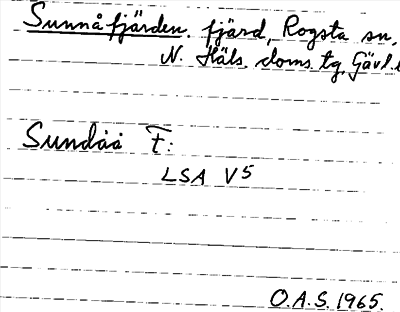 Sunnåfjärden. fjärd, Rogsta sn.
N. Häls. doms. tg, Gävl.
Sundåå F:
LSA V5
O.A.S. 1965.